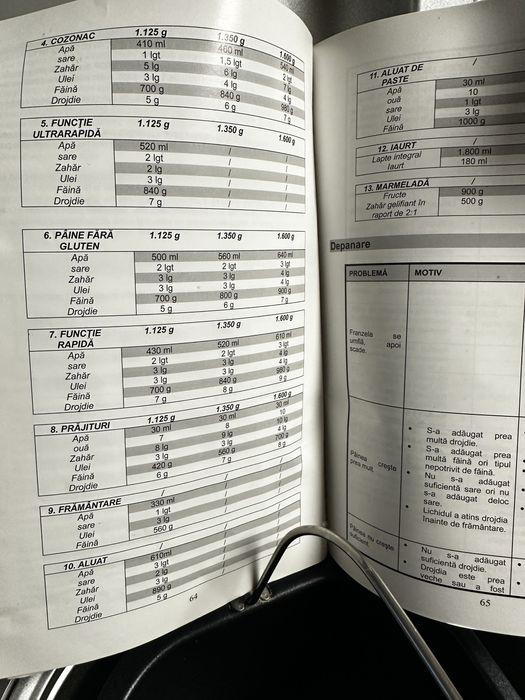 4. COZONAC 1.125 g 1.350 g 1.600 g
Apă 410 ml 460 ml 540 ml
sare 1 lgt 1,5 lgt 2 lgt
Zahăr 5 lg 6 lg 7 lg
Ulei 3 lg 4 lg 4 lg
Făină 700 g 840 g 980 g
Drojdie 5 g 6 g 7 g
5. FUNCȚIE ULTRARAPIDĂ 1.125 g 1.350 g 1.600 g
Apă 520 ml / /
sare 2 lgt / /
Zahăr 2 lg / /
Ulei 3 lg / /
Făină 840 g / /
Drojdie 7 g / /
6. PÂINE FĂRĂ GLUTEN 1.125 g 1.350 g 1.600 g
Apă 500 ml 560 ml 640 ml
sare 2 lgt 2 lgt 3 lgt
Zahăr 3 lg 3 lg 4 lg
Ulei 3 lg 3 lg 4 lg
Făină 700 g 800 g 900 g
Drojdie 5 g 6 g 7 g
7. FUNCȚIE RAPIDĂ 1.125 g 1.350 g 1.600 g
Apă 430 ml 520 ml 610 ml
sare 2 lgt 2 lgt 3 lgt
Zahăr 3 lg 3 lg 4 lg
Ulei 3 lg 3 lg 4 lg
Făină 700 g 840 g 980 g
Drojdie 7 g 8 g 9 g
8. PRĂJITURI 1.125 g 1.350 g 1.600 g
Apă 30 ml 30 ml 30 ml
ouă 7 8 10
Zahăr 8 lg 9 lg 10 lg
Ulei 3 lg 3 lg 4 lg
Făină 420 g 560 g 700 g
Drojdie 6 g 7 g 8 g
9. FRĂMÂNTARE / / /
Apă 330 ml / /
sare 1 lgt / /
Ulei 3 lg / /
Făină 560 g / /
10. ALUAT / / /
Apă 610ml / /
sare 3 lgt / /
Zahăr 2 lg / /
Ulei 3 lg / /
Făină 890 g / /
Drojdie 5 g / /
64
11. ALUAT DE PASTE /
Apă 30 ml
ouă 10
sare 1 lgt
Ulei 3 lg
Făină 1000 g
12. IAURT /
Lapte integral 1.800 ml
Iaurt 180 ml
13. MARMELADĂ /
Fructe 900 g
Zahăr gelifiant în 500 g
raport de 2:1
Depanare
PROBLEMĂ MOTIV
Franzela se
umflă, apoi
scade.
Pâinea crește
prea mult.
• S-a adăugat prea
multă drojdie.
• S-a adăugat prea
multă făină ori tipul
nepotrivit de făină.
• Nu s-a adăugat
suficientă sare ori nu
s-a adăugat deloc
sare.
• Lichidul a atins drojdia
înainte de frământare.
Pâinea nu crește
suficient.
• Nu s-a adăugat
suficientă drojdie.
• Drojdia este prea
veche sau a fost
65